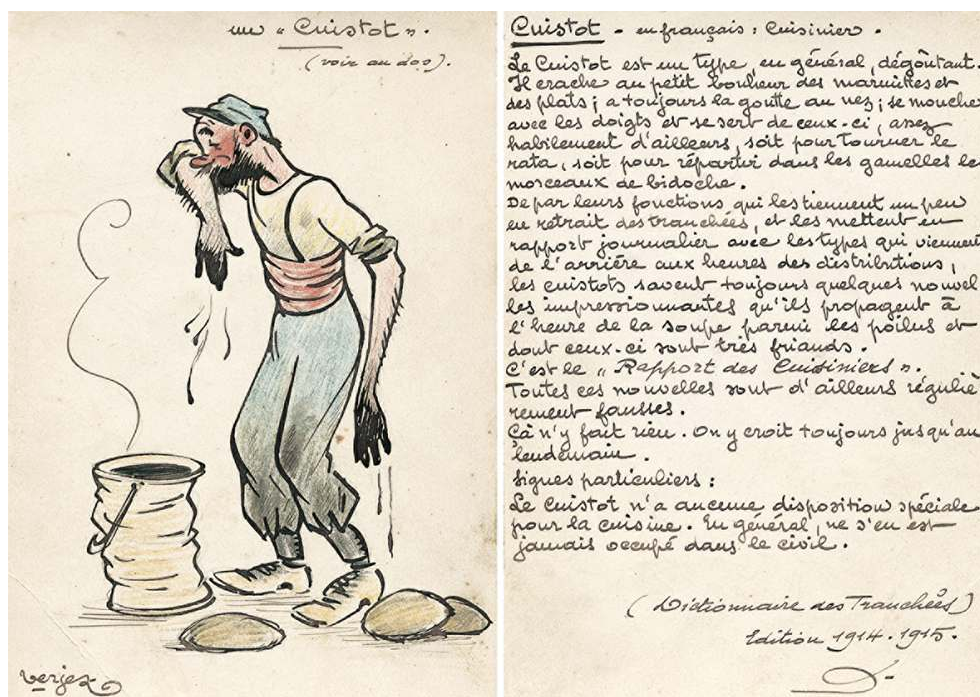 un "Cuistot".
(voir au dos).
verjez
Cuistot - en français : Cuisinier.
Le Cuistot est un type, en général, dégoûtant.
Il crache au petit bonheur des marmites et
des plats ; a toujours la goutte au nez ; se mouche
avec les doigts et se sert de ceux-ci, assez
habilement d'ailleurs, soit pour tourner le
rata, soit pour répartir dans les gamelles le
morceaux de bidoche.
De par leurs fonctions qui les tiennent un peu
en retrait des tranchées, et les mettent en
rapport journalier avec les types qui viennent
de l'arrière aux heures des distributions,
les cuistots savent toujours quelques nouvel
les impressionnantes qu'ils propagent à
l'heure de la soupe parmi les poilus et
dont ceux-ci sont très friands.
C'est le "Rapport des Cuisiniers".
Toutes ces nouvelles sont d'ailleurs réguliè
rement fausses.
Çà n'y fait rien. On y croit toujours jusqu'au
lendemain.
Signes particuliers :
Le Cuistot n'a aucune disposition spéciale
pour la cuisine. En général, ne s'en est
jamais occupé dans le civil.
(Dictionnaire des Tranchées)
Edition 1914.1915.